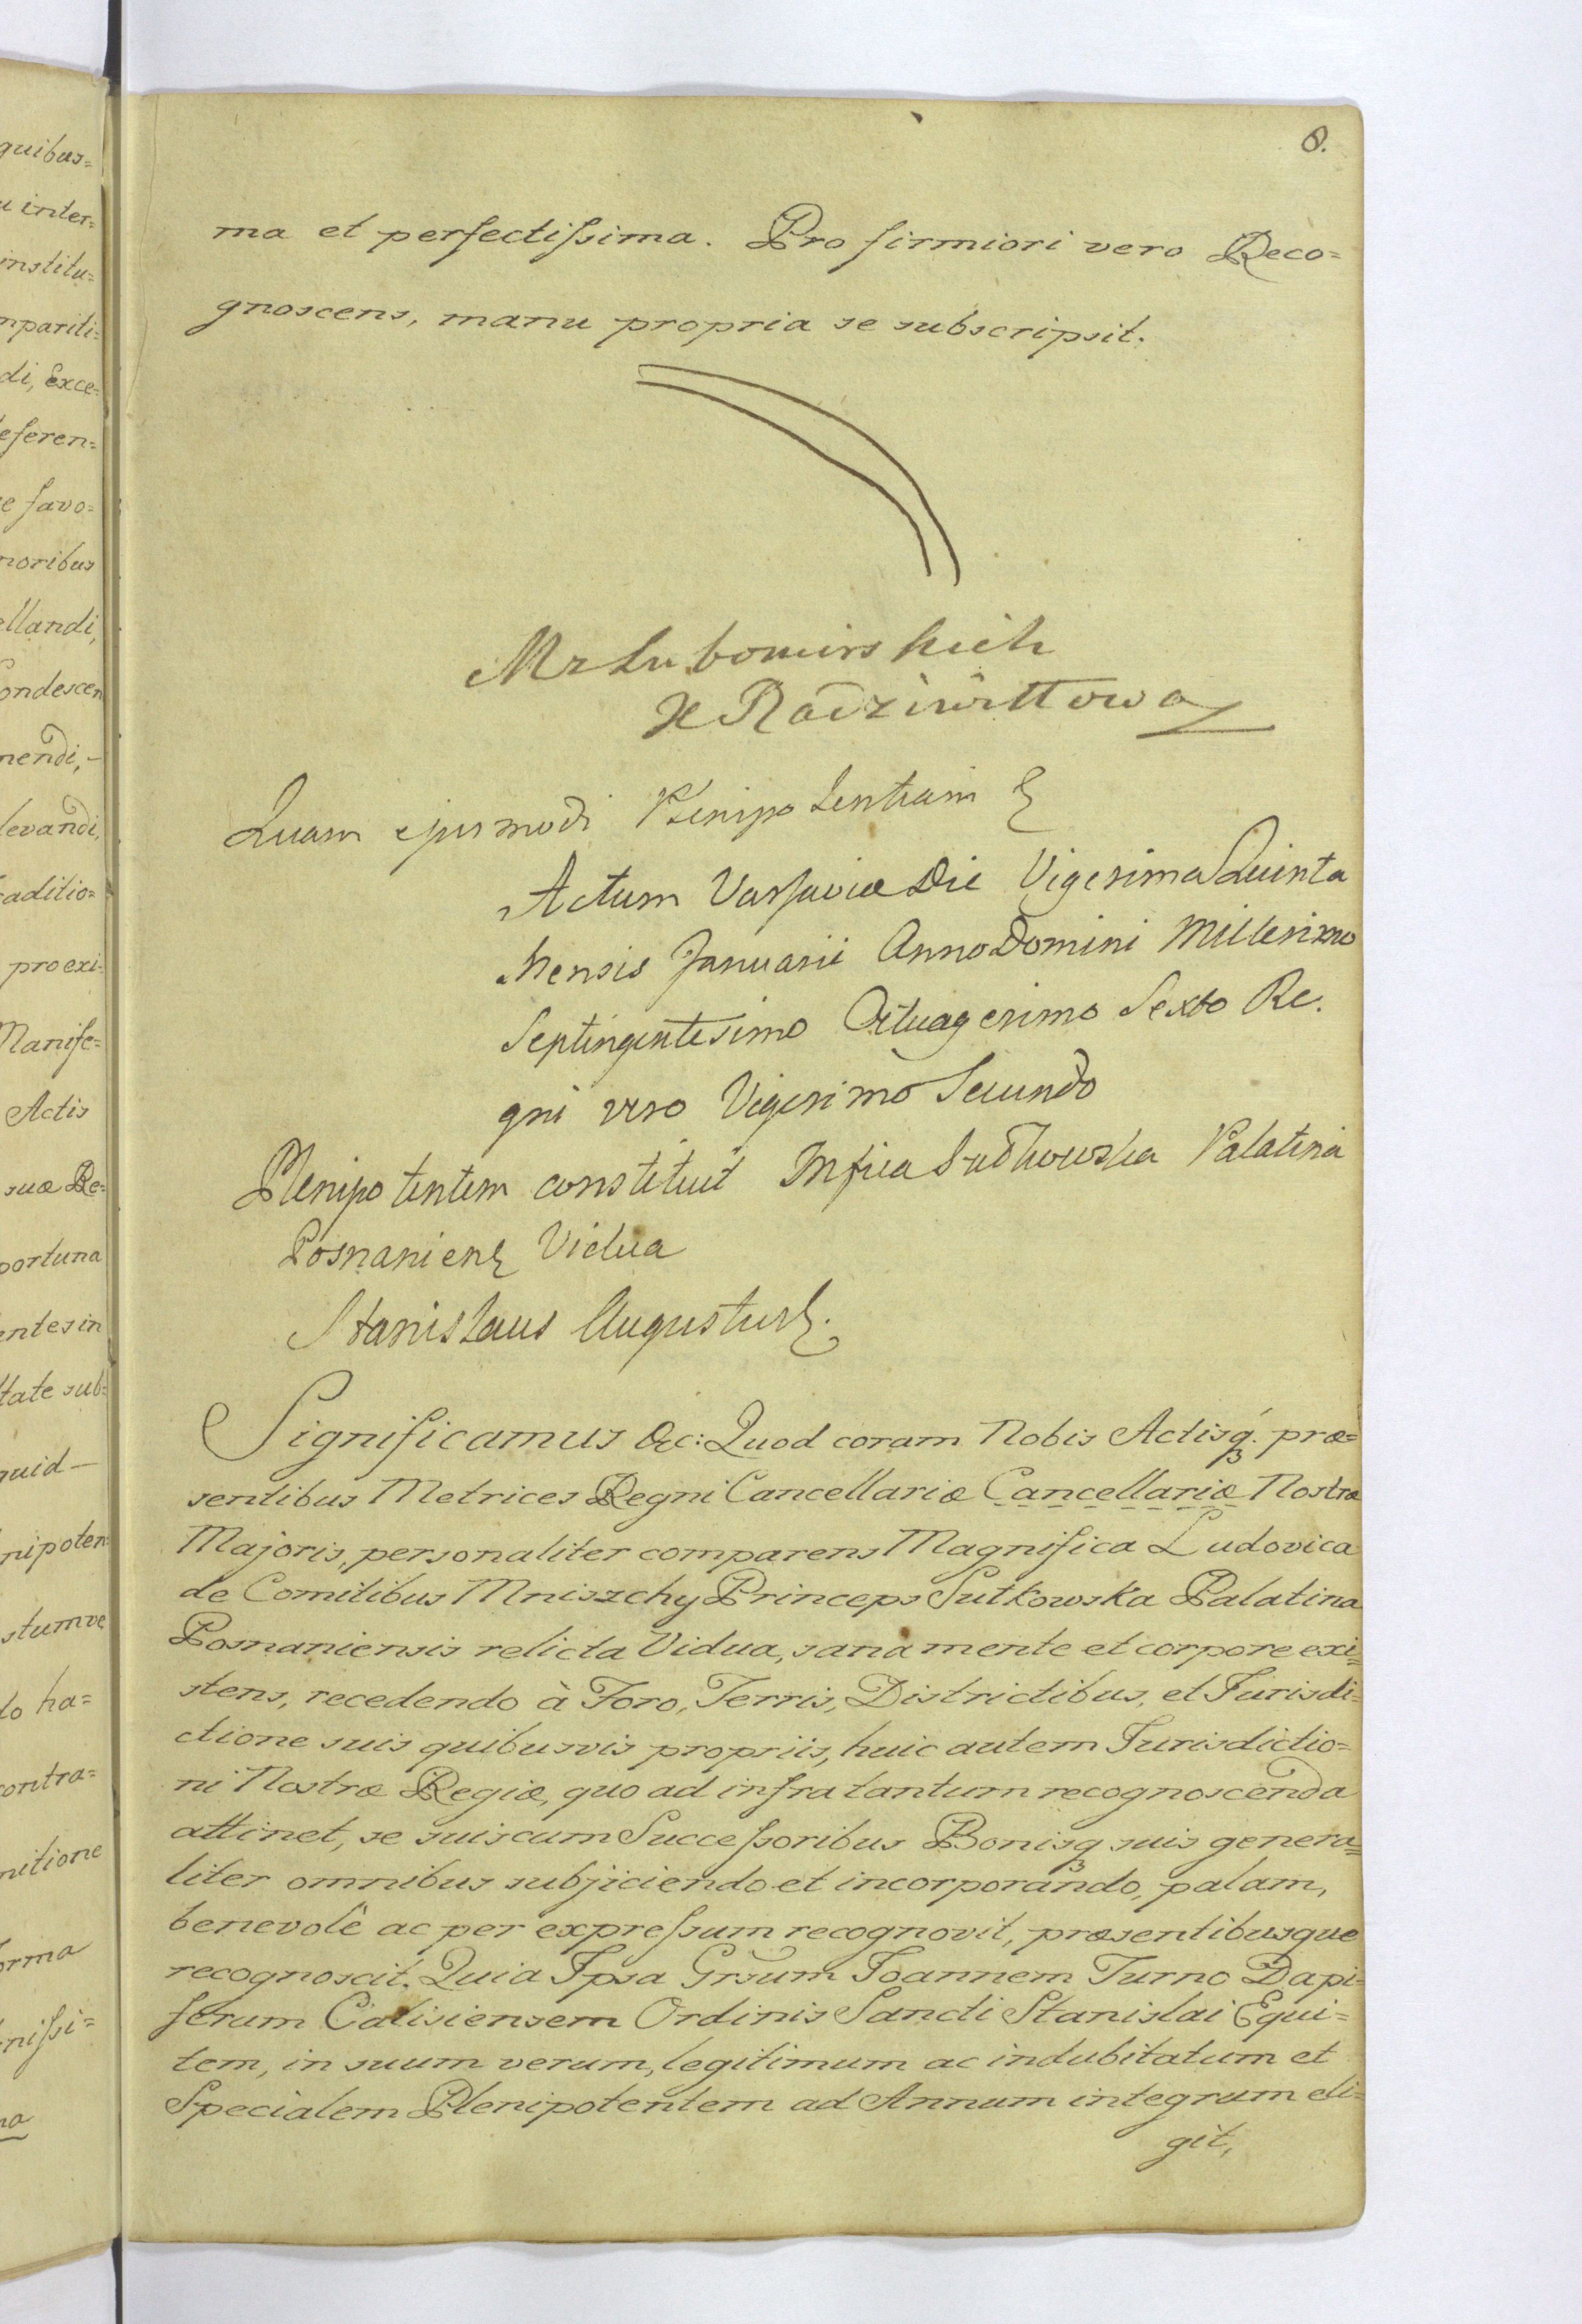 quibus=
u inter=
institu=
mpariti=
di, Exce=
eferen=
e favo=
noribus
ellandi,
ondescen
nendi,-
levandi,
aditio=
pro exi-
Manife=
Actis
suæ Re-
portuna
entes in
tate sub=
quid —
nipoten=
stumve
do ha=
contra=
nitione
orma
nißi=
na
8.
ma et perfectißima. Pro firmiori vero Reco=
gnoscens, manu propria se subscripsit.
Mz Lubomirskich
X Radziwiłłowa
Quam ejusmodi Plenipotentiam
Actum Varsaviæ Die Vigesima Quinta
Mensis Januarii Anno Domini Millesimo
Septingentesimo Octuagesimo Sexto Re.
gni vero Vigesimo Secundo
Plenipotentem constituit Sutkowska Palatina
Posnaniens Vidua
Stanislaus Augustus.
Significamus &c: Quod coram Nobis Actisq. præ=
sentibus Metrices Regni Cancellariæ Cancellariæ Nostræ
Majoris, personaliter comparens Magnifica Ludovica
de Comitibus Mniszchy Princeps Sutkowska Palatina
Posnaniensis relicta Vidua, sana mente et corpore exi=
stens, recedendo à Foro, Terris, Districtibus, et Jurisdi=
ctione suis quibusvis propriis, huic autem Jurisdictio=
ni Nostræ Regiæ, quo ad infra tantum recognoscenda
attinet, se suis cum Succeßoribus Bonisq suis genera=
liter omnibus subjiciendo et incorporando, palam,
benevolê ac per expreßum recognovit, præsentibusque
recognoscit. Quia Ipsa Grsum Joannem Turno Dapi-
ferum Calisiensem Ordinis Sancti Stanislai Equi=
tem, in suum verum, legitimum ac indubitatum et
Specialem Plenipotentem ad Annum integrum eli=
git,